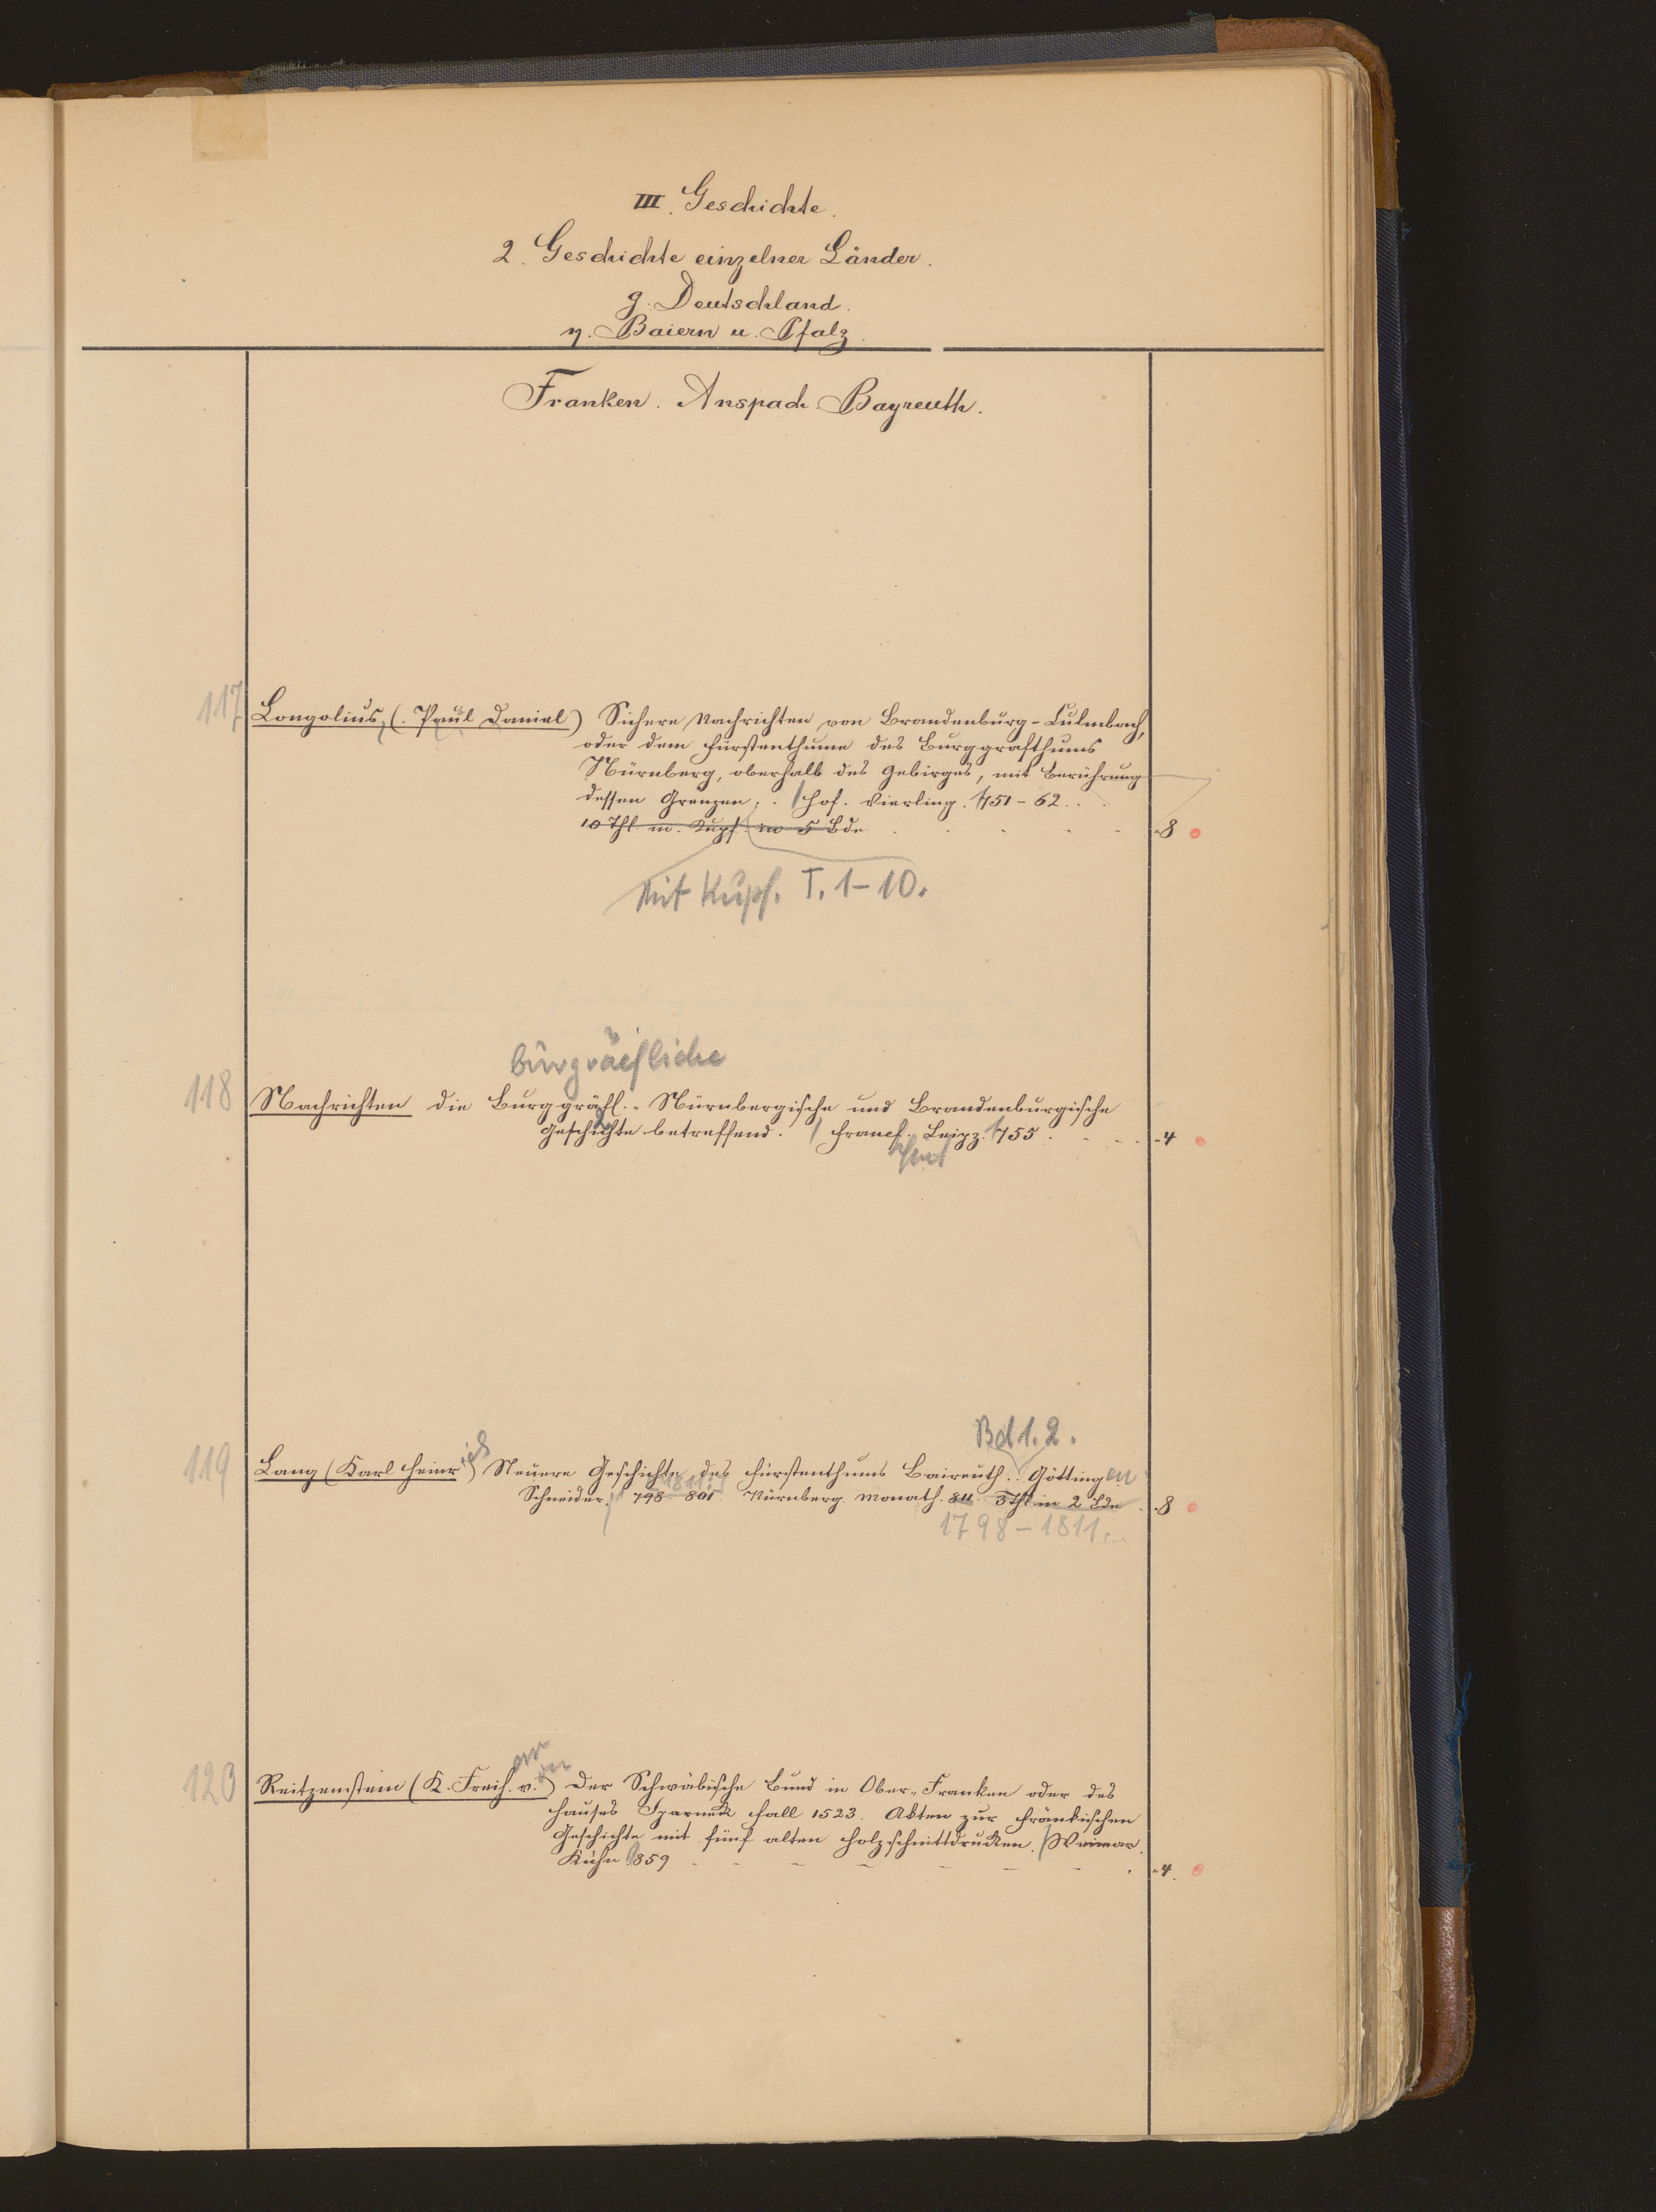 III. Geschichte.
2. Geschichte einzelner Länder.
g. Deutschland.
η. Baiern u. Pfalz.
Franken. Anspach Bayreuth.
117 Longolius, (Paul Daniel) Sichere Nachrichten von Brandenburg-Culmbach,
oder dem Fürstenthume des Burggrafthums
Nürnberg, oberhalb des Gebirges, mit Berührung
dessen Grenzen. Hof. Vierling. 1751-62.
10 Thl. m. Kupf. in 5 Bde 8
Mit Kupf. T. 1-10.
burgräfliche
118 Nachrichten die Burggräfl.- Nürnbergische und Brandenburgische
Geschichte betreffend. / Francf. Leipz. 1755 4
Bd 1. 2.
119 Lang (Karl Heinrich) Neuere Geschichte des Fürstenthums Baireuth. Göttingen
1811.
Schneider. 798-801. Nürnberg. Monath. 811. 3 Thl in 2 Bde 8
1798-1811.
120 Reitzenstein (K. Freih. v.) Der Schwäbische Bund in Ober-Franken oder des
Hauses Sparneck Fall 1523. Akten zur fränkischen
Geschichte mit fünf alten Holzschnittdrucken. / Weimar.
Kühn 1859 4.